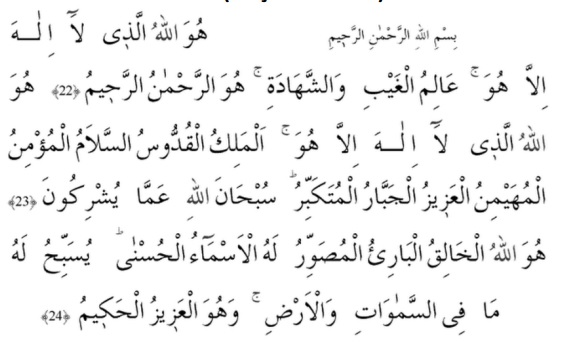 بِسْمِ اللهِ الرَّحْمٰنِ الرَّحِيمِ هُوَ اللهُ الَّذِى لَآ اِلٰــهَ
اِلاَّ هُوَ ۚ عَالِمُ الْغَيْبِ وَالشَّهَادَةِ ۚ هُوَ الرَّحْمٰنُ الرَّحِيمُ ﴿22﴾ هُوَ
اللهُ الَّذِى لَآ اِلٰــهَ اِلاَّ هُوَ ۚ اَلْمَلِكُ الْقُدُّوسُ السَّلاَمُ الْمُؤْمِنُ
الْمُهَيْمِنُ الْعَزِيزُ الْجَبَّارُ الْمُتَكَبِّرُ ۜ سُبْحَانَ اللهِ عَمَّا يُشْرِكُونَ ﴿23﴾
هُوَ اللهُ الْخَالِقُ الْبَارِئُ الْمُصَوِّرُ لَهُ الْاَسْمَآءُ الْحُسْنٰى ۜ يُسَبِّحُ لَهُ
مَا فِى السَّمٰوَاتِ وَالْاَرْضِ ۚ وَهُوَ الْعَزِيزُ الْحَكِيمُ ﴿24﴾